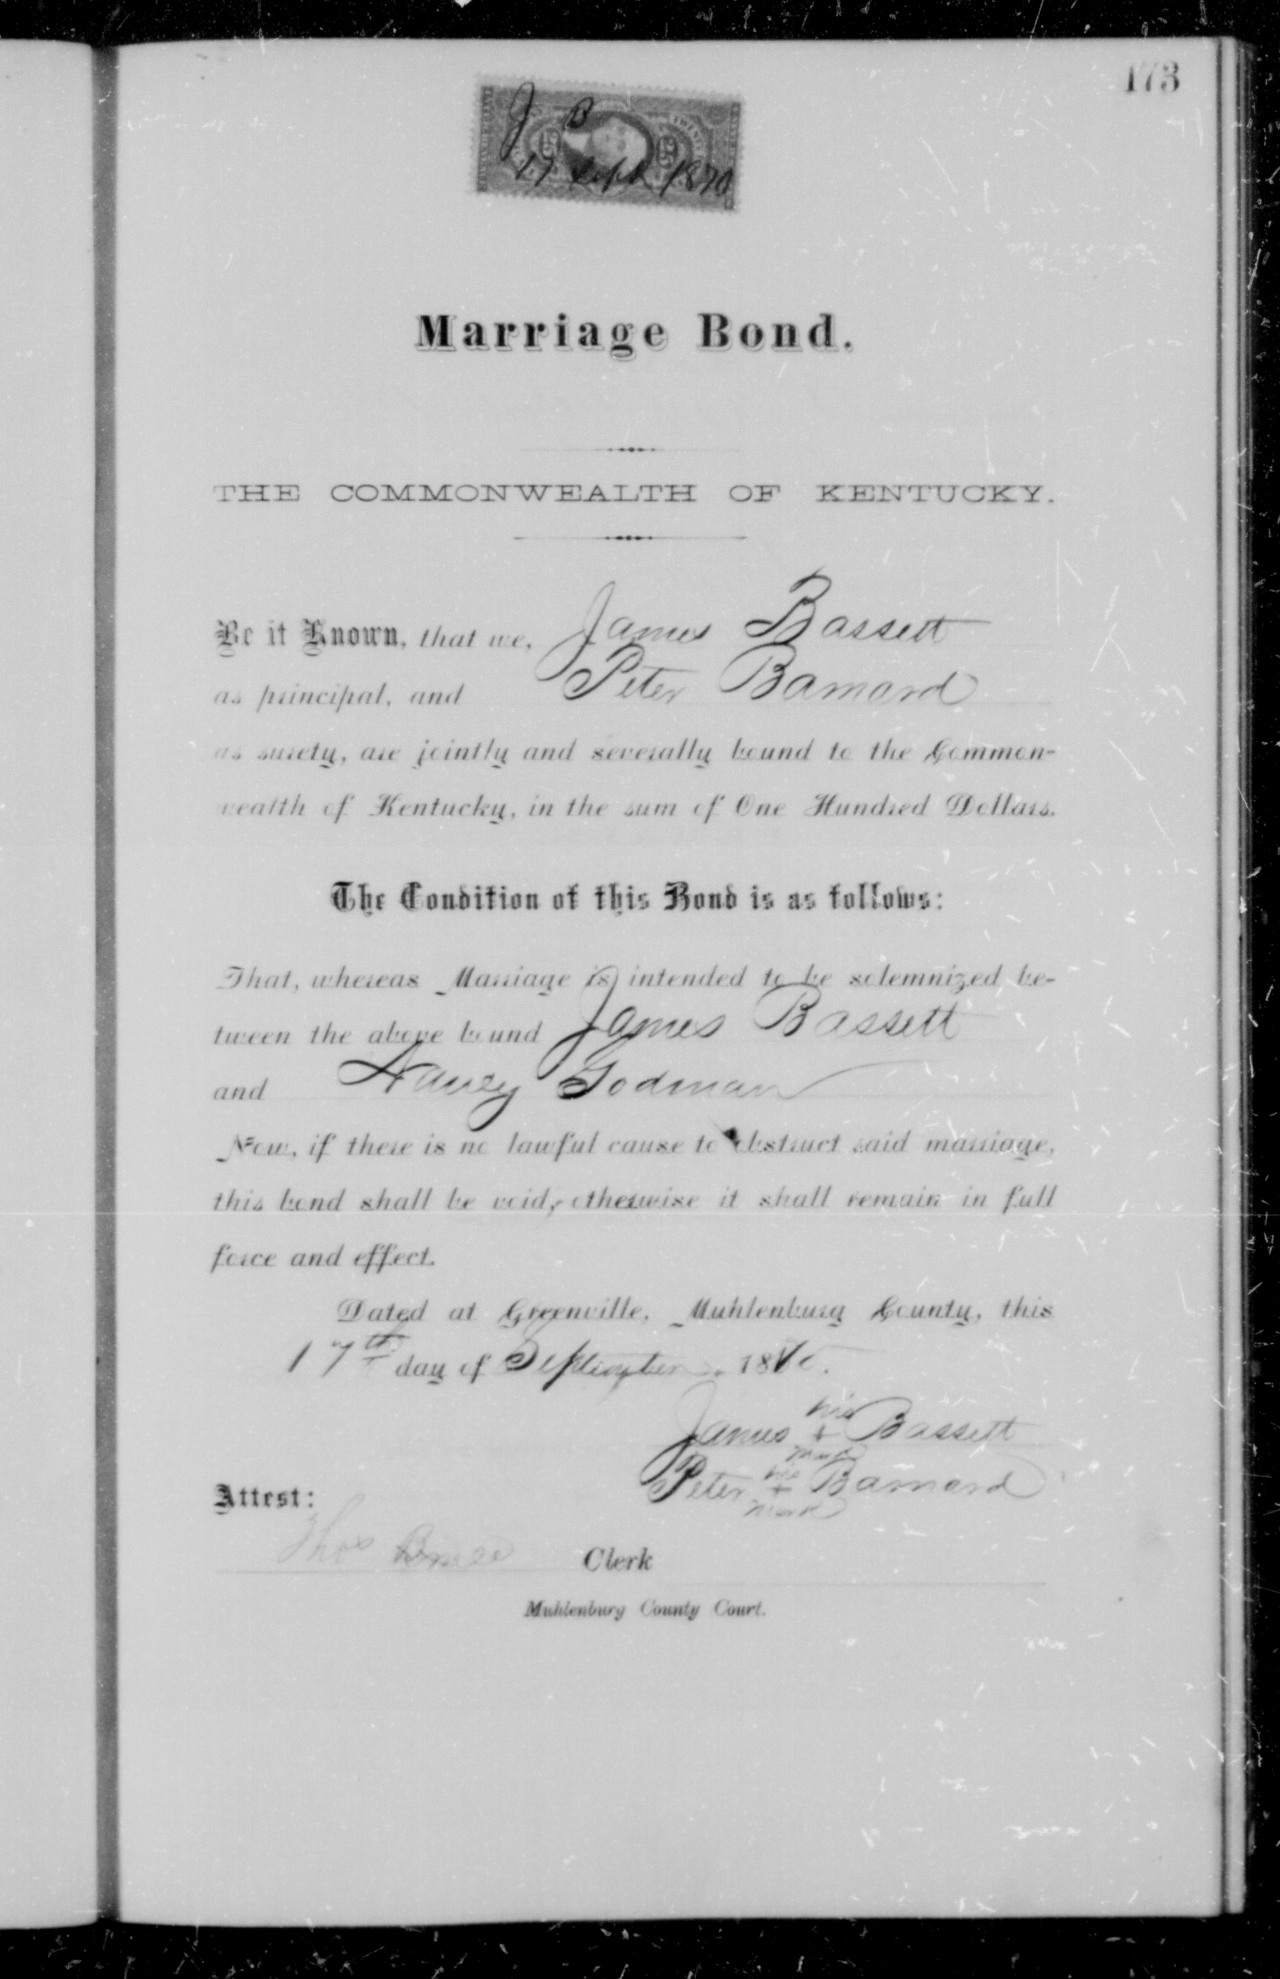 173
J B
17 Sept 1870
Marriage Bond.
THE COMMONWEALTH OF KENTUCKY.
Be it Known, that we, James Bassett
as principal, and Peter Barnard
as surety, are jointly and severally bound to the Common-
wealth of Kentucky, in the sum of One Hundred Dollars.
The Condition of this Bond is as follows:
That, whereas Marriage is intended to be solemnized be-
tween the above bound James Bassett
and Nancy Godman
Now, if there is no lawful cause to obstruct said marriage,
this bond shall be void, otherwise it shall remain in full
force and effect.
Dated at Greenville, Muhlenburg County, this
17th day of September 1870.
his
James + Bassett
mark
his
Peter + Barnard
mark
Attest:
Thos Bruce Clerk
Muhlenburg County Court.